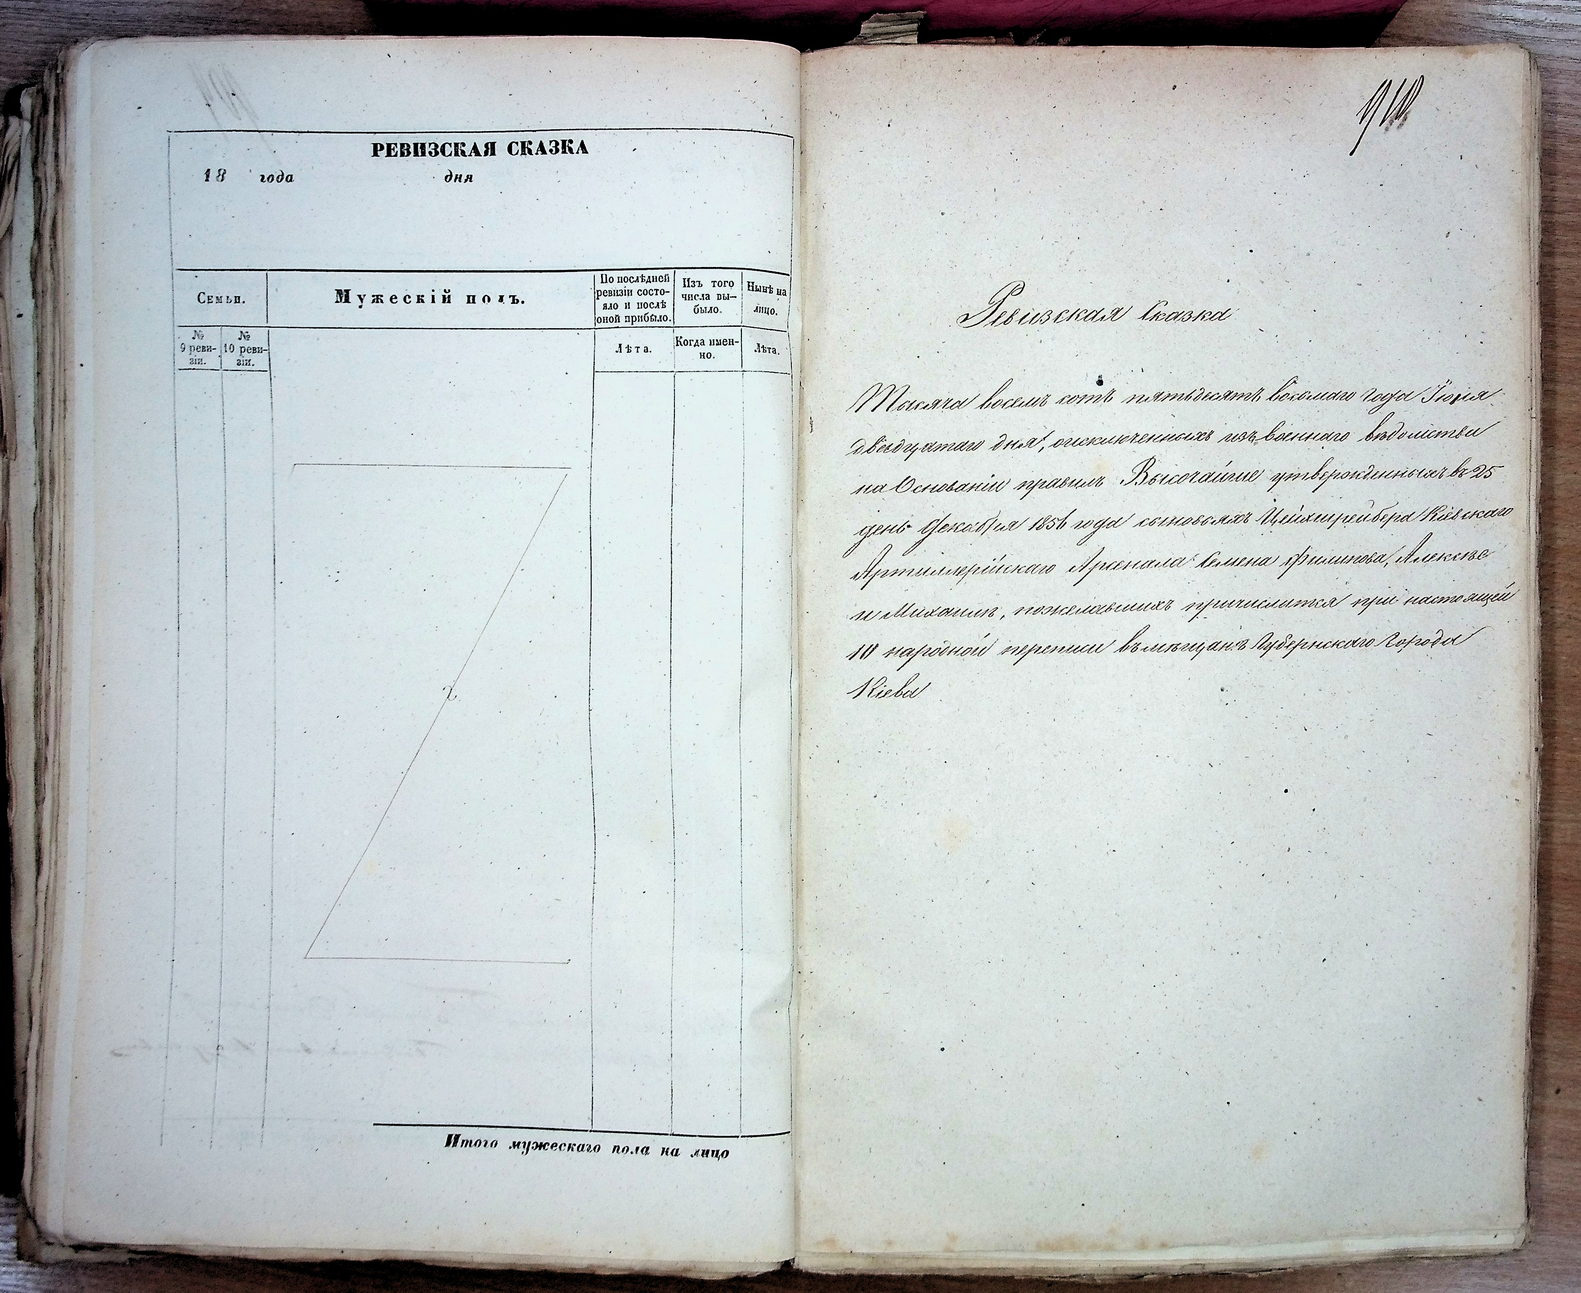 РЕВИЗСКАЯ СКАЗКА
18 года дня
Семьи.
Мужескій полъ.
По послѣдней
ревизіи состо-
яло и послѣ
оной прибыло.
Изъ того
числа вы-
было.
Нынѣ на
лицо.
№
9 реви-
зіи.
№
10 реви-
зіи.
Лѣта.
Когда имен-
но.
Лѣта.
Итого мужескаго пола на лицо
Ревизская Сказка
Тысяча восемь сотъ пятьдесятъ восьмаго года Іюня
двадцатаго дня, о исключенныхъ изъ военнаго вѣдомства
на Основаніи правилъ Высочайше утвержденныхъ въ 25
день Декабря 1856 года сыновьяхъ Цейхшрейбера Кіевскаго
Артиллерійскаго Арсенала Семена Филипова, Алексѣѣ
и Михаилѣ, пожелавшихъ причислится при настоящей
10 народной переписи въ мѣщанъ Губернскаго Города
Кіева